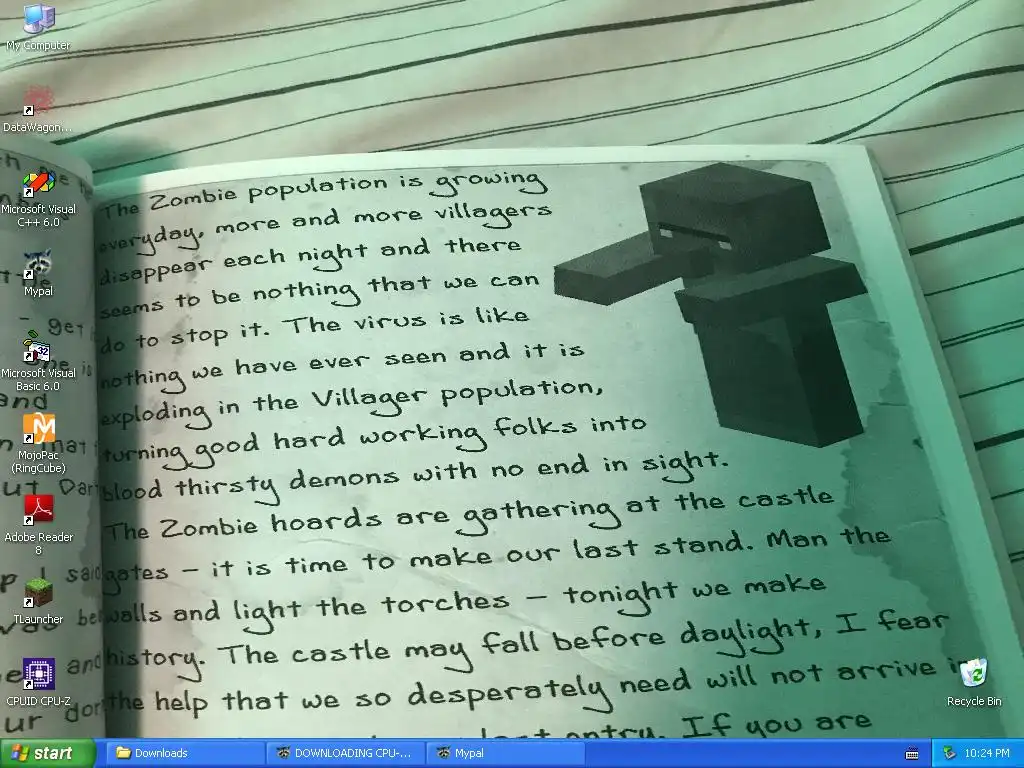 My Computer
DataWagon...
Microsoft Visual
C++ 6.0
Mypal
Microsoft Visual
Basic 6.0
MojoPac
(RingCube)
Adobe Reader
8
TLauncher
CPUID CPU-Z
The Zombie population is growing
everyday, more and more villagers
disappear each night and there
seems to be nothing that we can
do to stop it. The virus is like
nothing we have ever seen and it is
exploding in the Villager population,
turning good hard working folks into
blood thirsty demons with no end in sight.
The Zombie hoards are gathering at the castle
gates – it is time to make our last stand. Man the
walls and light the torches – tonight we make
history. The castle may fall before daylight, I fear
the help that we so desperately need will not arrive
entry. If you are
Recycle Bin
start
Downloads
DOWNLOADING CPU-...
Mypal
10:24 PM